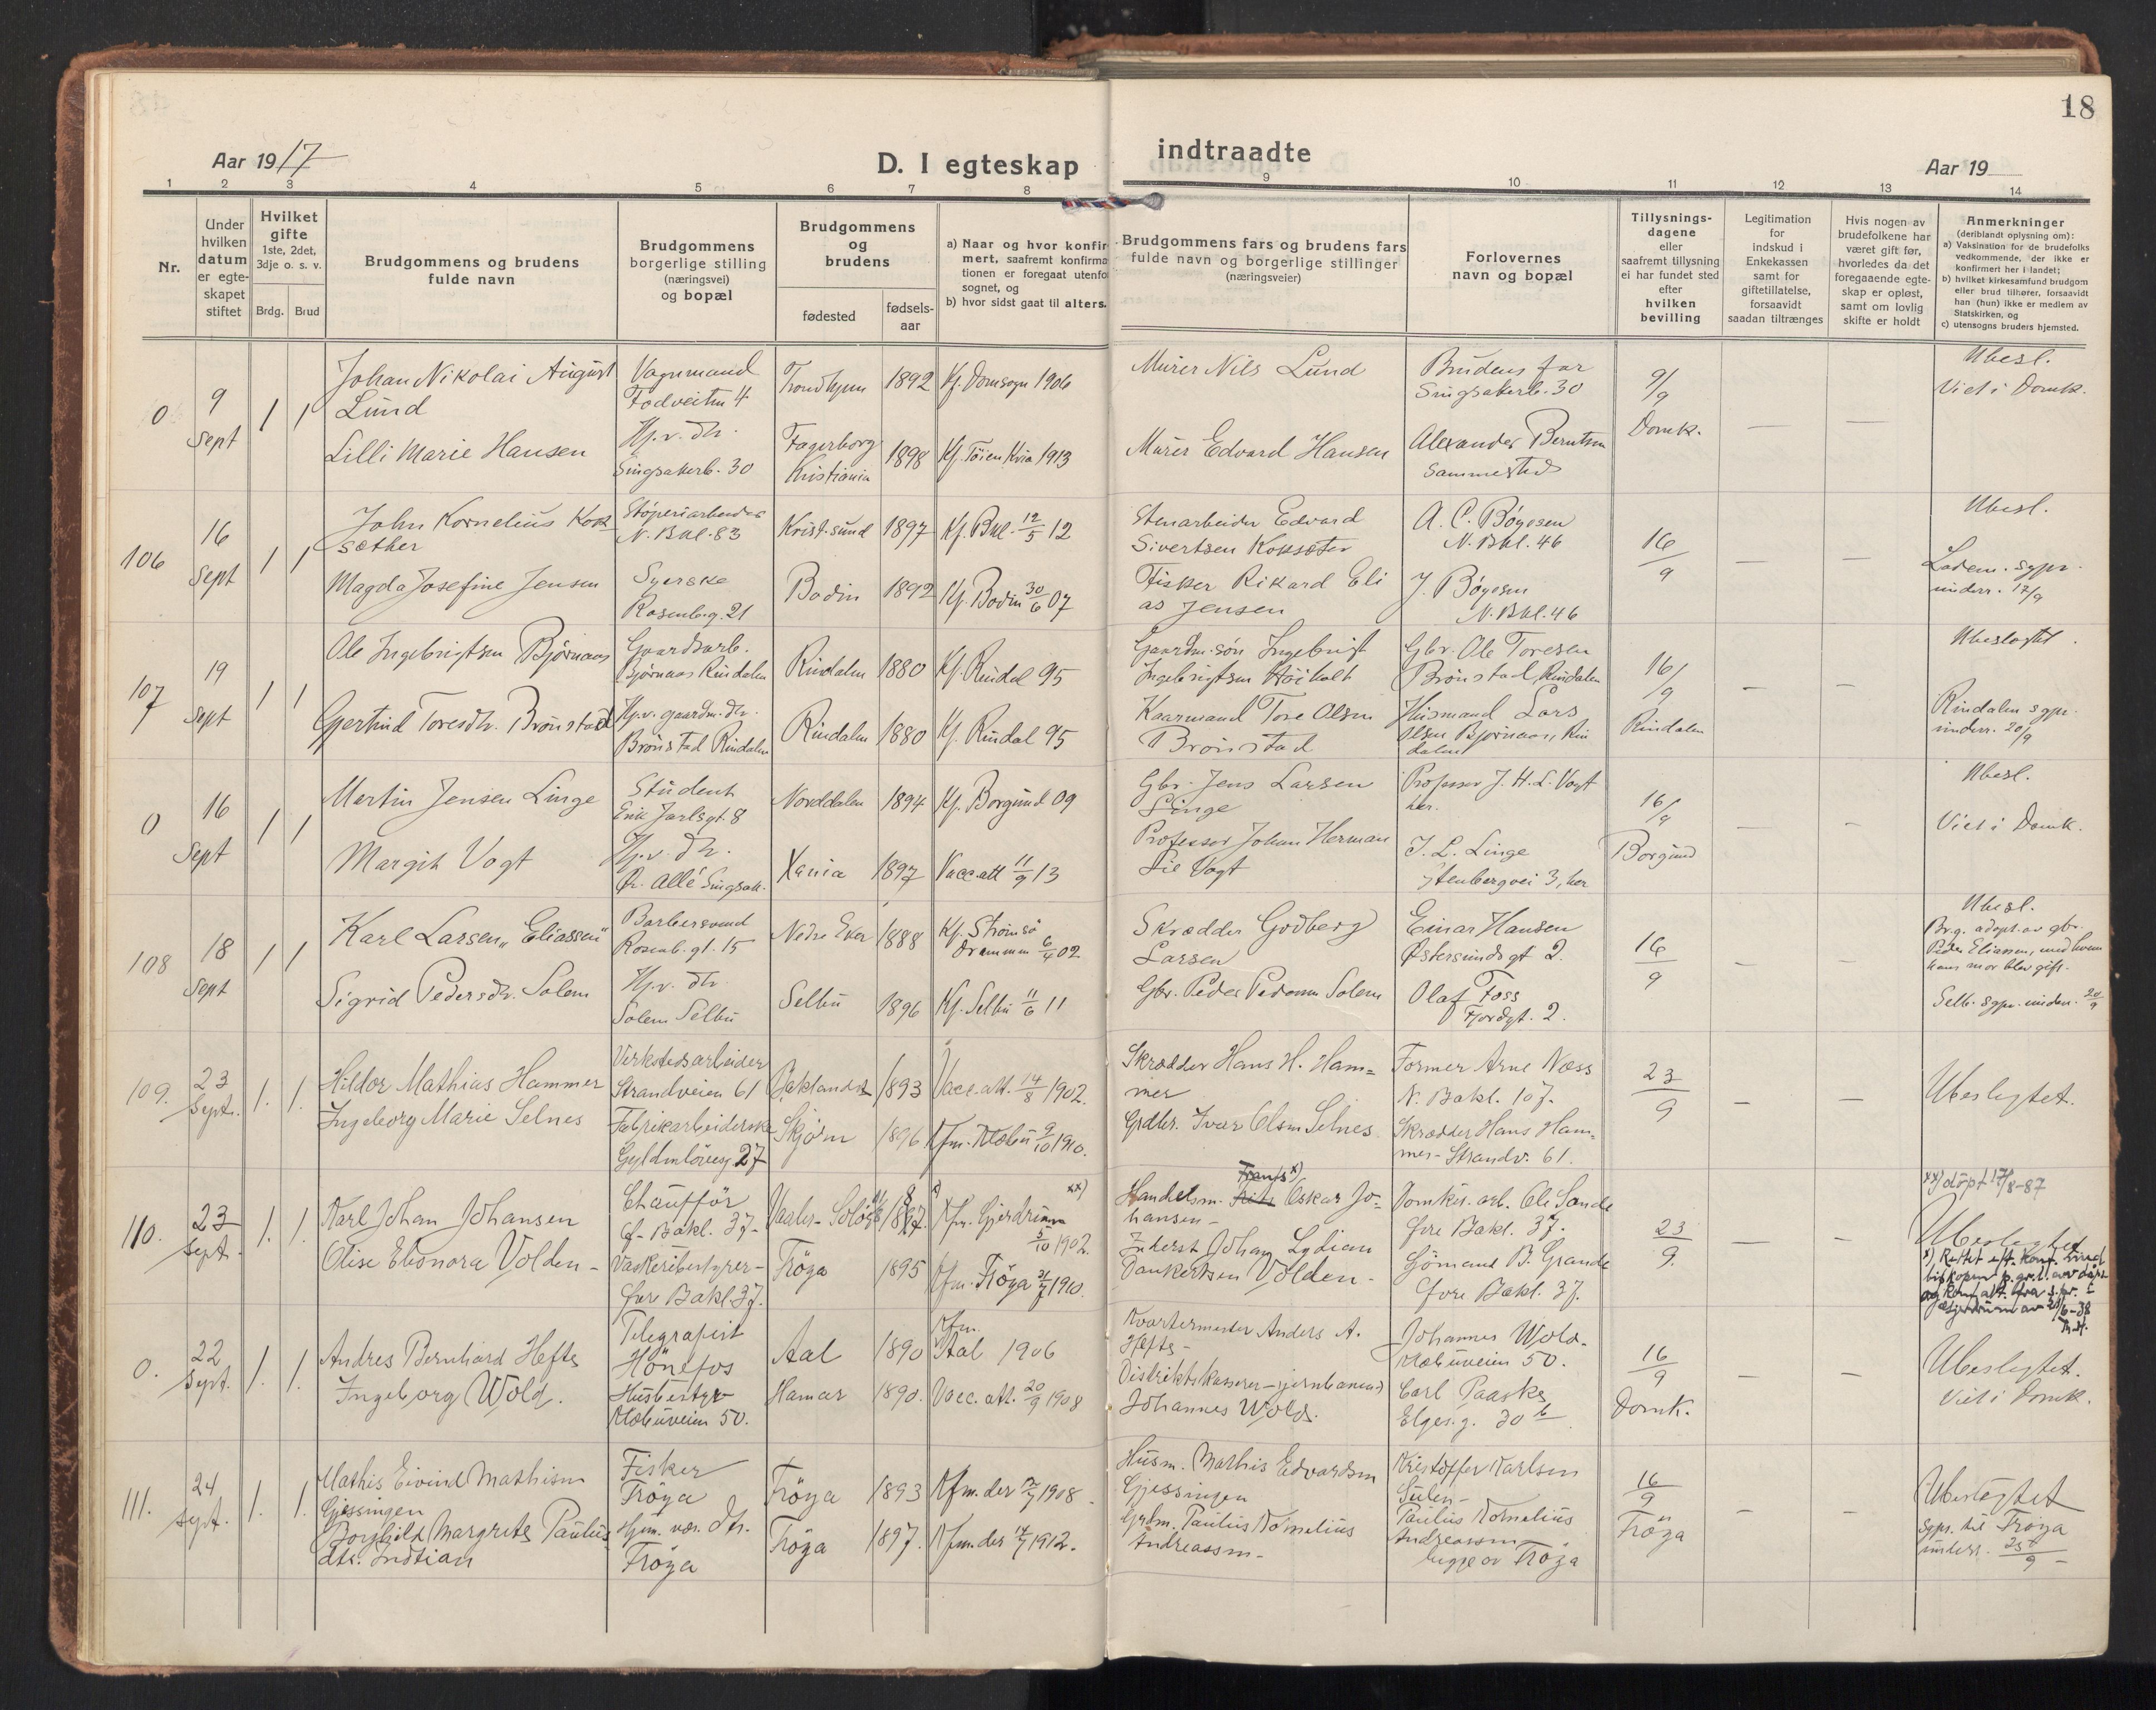 18
Aar 1917
D. I egteskap
indtraadte
Aar 19
1 2 3 4 5 6 7 8 9 10 11 12 13 14
Nr.
Under hvilken datum er egte-skapet stiftet
Hvilket gifte 1ste, 2det, 3dje o. s. v.
Brdg. Brud
Brudgommens og brudens fulde navn
Brudgommens borgerlige stilling (næringsvei) og bopæl
Brudgommens og brudens
fødested
fødsels-aar
a) Naar og hvor konfir-
mert, saafremt konfirma
tionen er foregaat utenfo
sognet, og
b) hvor sidst gaat til alters.
Brudgommens fars og brudens fars
fulde navn og borgerlige stillinger
(næringsveier)
Forlovernes
navn og bopæl
Tillysnings-
dagene
eller
saafremt tillysning
ei har fundet sted
efter
hvilken
bevilling
Legitimation
for
indskud i
Enkekassen
samt for
giftetillatelse,
forsaavidt
saadan tiltrænges
Hvis nogen av
brudefolkene har
været gift før,
hvorledes da det
foregaaende egte-
skap er opløst,
samt om lovlig
skifte er holdt
Anmerkninger
(deriblandt oplysning om):
a) Vaksination for de brudefolks
vedkommende, der ikke er
konfirmert her i landet;
b) hvilket kirkesamfund brudgom
eller brud tilhører, forsaavidt
han (hun) ikke er medlem av
Statskirken, og
c) utensogns bruders hjemsted.
0
9
Sept
1 1
Johan Nikolai August
Lund
Vognmand
Fodveitn 4
Trondhjem 1892 Kf. Domsogn 1906
Murer Nils Lund
Brudens far
Singsakerb. 30
9/9
Domk.
— —
Ubesl.
Viet i Domk.
Lilli Marie Hansen
Hj.v. dtr.
Singsakerb. 30
Fagerborg
Kristiania
1898 Kf. Tøien Kria 1913
Murer Edvard Hansen
Alexander Berntsen
Sammesteds
106
16
Sept
1 1
John Kornelius Kok
sæther
Støperiarbeider
N. Bkl. 83
Krist.sund 1897 Kf. Bkl. 12/5 12
Stenarbeider Edvard
Sivertsen Koksæter
A. C. Bøgesen
N. Bkl. 46
16/9
— —
Ubesl.
Ladem. sgpr.
underr. 17/9
Magda Josefine Jensen
Syerske
Rosenborg. 21
Bodin 1892 Kf. Bodin 30/6 07
Fisker Rikard Eli
as Jensen
J. Bøgesen
N. Bkl. 46
107
19
Sept
1 1
Ole Ingebrigtsen Bjørnaas
Gaardsarb.
Bjørnaas Rindalen
Rindalen 1880 Kf. Rindal 95
Gaardm.søn Ingebrigt
Ingebrigtsen Höiholt
Gbr. Ole Toresen
Brönstad, Rindalen
16/9
Rindalen
— —
Ubeslegtet.
Rindalen sgpr.
underr. 20/9
Gjertrud Toresdtr. Brönstad
Hj.v. gaardm. dtr.
Brönstad Rindalen
Rindalen 1880 Kf. Rindal 95
Kaarmand Tore Olsen
Brönstad
Husmand Lars
Olsen Bjørnaas, Rin
dalen
0
16
Sept
1 1
Martin Jensen Linge
Student
Erik Jarlsgt. 8
Norddalen 1894 Kf. Borgund 09
Gbr. Jens Larsen
Linge
Professor J. H. L. Vogt
her.
16/9
Borgund
— —
Ubesl.
Viet i Domk.
Margit Vogt
Hj.v. dtr.
Ø. Allé Singsak.
Xania 1897 Vacc.att 11/9 13
Professor Johan Herman
Lie Vogt
J. L. Linge
Stenbergvei 3, her
108
18
Sept
1 1
Karl Larsen „Eliassen"
Barbersvend
Rosenb. gt. 15
Nedre Eker 1888 Kf. Strømsø
Drammen 6/4 02
Skrædder Godberg
Larsen
Einar Hansen
Østersundsgt 2.
16/9
— —
Ubesl.
Br.g. adopt. av gbr.
Peder Eliassen, med hvem
hans mor blev gift.
Selb. sgpr. underr. 20/9
Sigrid Pedersdtr. Solem
Hj.v. dtr.
Solem Selbu
Selbu 1896 Kf. Selbu 11/6 11
Gbr. Peder Pedersen Solem
Olaf Foss
Fjordgt. 2.
109.
23
Sept.
1. 1.
Hildor Mathias Hammer
Verkstedsarbeider
Strandveien 61
Baklandet 1893 Vacc.att. 14/8 1902.
Skrædder Hans H. Ham=
mer
Former Arne Næss
N. Bakl. 107.
23/9
— —
Ubeslegtet.
Ingeborg Marie Selnes
Fabrikarbeiderske
Gyldenløvesg 27
Skjörn 1896 Kfm. Klæbu 9/10 1910.
Grdbr. Ivar Olsen Selnes.
Skrædder Hans Ham=
mer - Strandv. 61.
110.
23
Sept.
1. 1.
Karl Johan Johansen
Chauffør
Ø- Bakl. 37-
Vaaler- Solør 1887. Kfm. Gjerdrum xx)
5/10 1902.
Frants x)
Handelsm. Oskar Jo=
hansen -
Domkir. arb. Ole Sande
Øvre Bakl. 37.
23/9.
— —
xx) döpt 17/8-87
Ubeslegtet
Olise Eleonora Volden -
Vaskeribestyrer -
Øvre Bakl. 37.
Fröya 1895 Kfm. Fröya 1910.
Inderst Johan Lydian
Dankertsen Volden -
Gömand B. Grande
Øvre Bakl. 37.
0.
22
Sept.
1. 1.
Andres Bernhard Hefte
Telegrafist
Hönefos
Aal 1890 Kfm. Aal 1906
Kvartermester Anders A.
Hefte -
Johannes Wold -
Klæbuveien 50.
16/9
Domk.
— —
Ubeslegtet.
Viet i Domk.
Ingeborg Wold.
Husbestyr
Klæbuveien 50.
Hamar 1890. Vacc. att. 20/9 1908
Distriktskasserer - jernbanen)
Johannes Wold.
Carl Paaske
Elges.g. 30 b
111.
24
Sept.
1. 1.
Mathis Eivind Mathisen
Gjessingen
Fisker
Fröya
Fröya 1893 Kfm. der 1908.
Husm. Mathis Edvardsen
Gjessingen
Kristoffer Karlsen
Sulen -
16/9
Fröya
— —
Ubeslegtet
Sgpr. til Fröya
underr. 25/9 -
Borghild Margrete Paulus
dtr. Indtian
Hjem. vær. dtr.
Fröya
Fröya 1897. Kfm. der 1912.
Grdm. Paulus Kornelius
Andreassen -
Paulus Kornelius
Andreassen
begge av Fröya